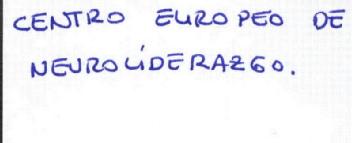 CENTRO EUROPEO DE
NEUROLÍDERAZGO.